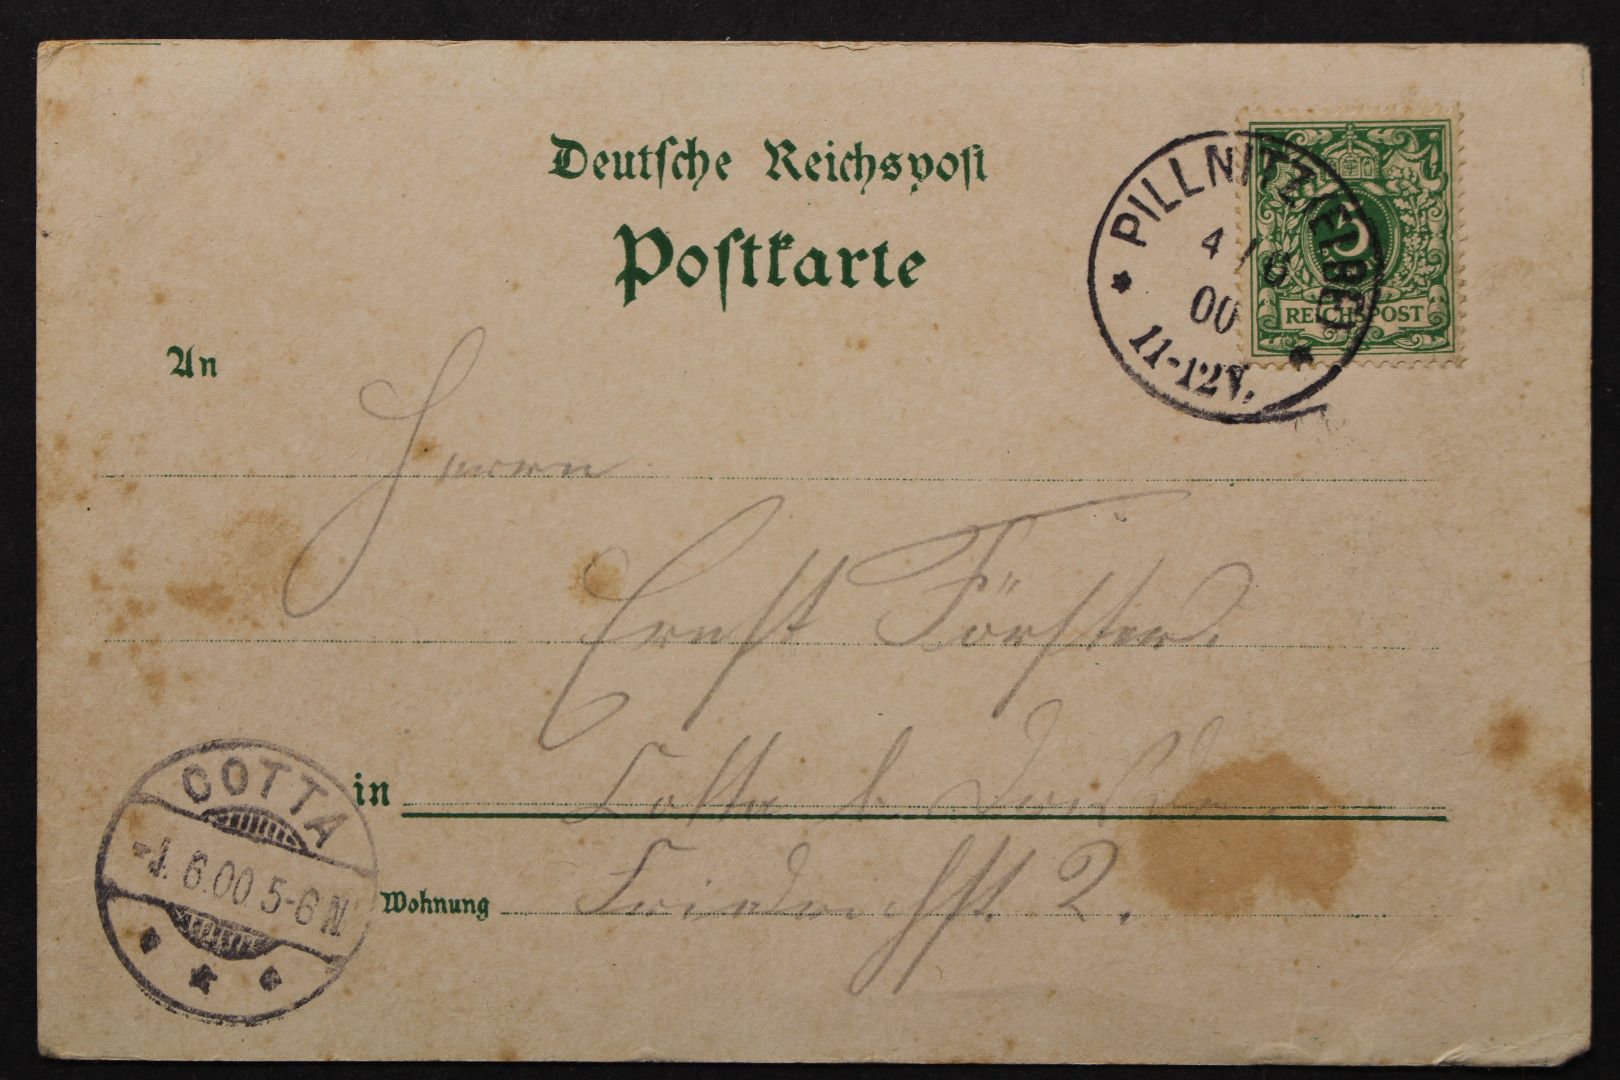 Deutsche Reichspost
Postkarte
PILLNITZ
4/6
00
11-12V.
5
REICHSPOST
An
Herrn
Ernst Förster.
in Cotta b. Dresden
Wohnung Friedrichst. 2.
COTTA
6.00 5-6N